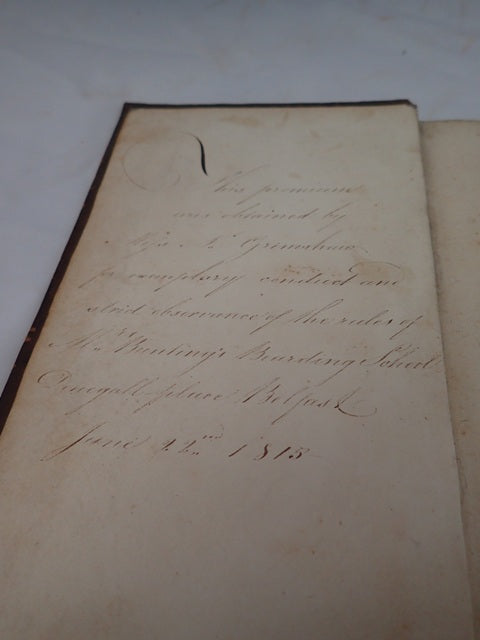 This premium
was obtained by
Miss N. Grimshaw
for exemplary conduct and
strict observance of the rules of
Mrs Bunting's Boarding School
Donegall place Belfast
June 22nd 1815